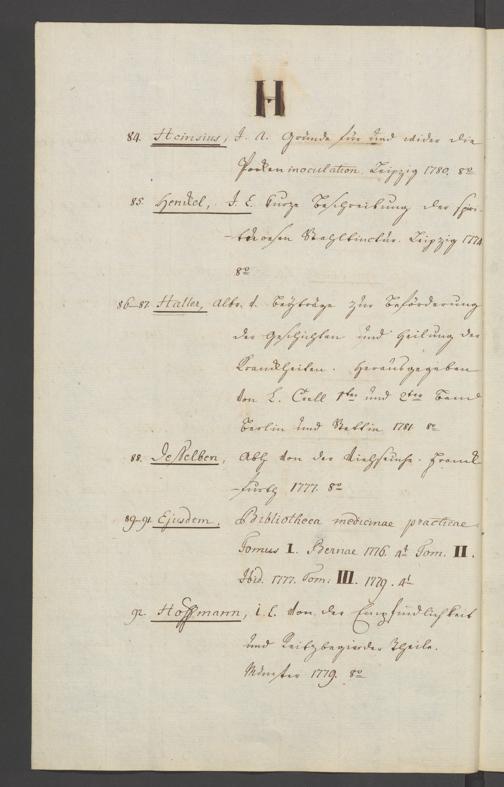 H
84. Heinsius, J. A. Gründe für und wider die
Pocken inoculation. Leipzig 1780. 8º
85. Henkel, J. E. kurze Beschreibung der spiri-
tuosen Stahltinctur. Leipzig 1774
8º
86–87. Haller, Albr. v. Beyträge zur Beförderung
der Geschichten und Heilung der
Krankheiten. Herausgegeben
von L. Crell 1ter und 2ter Band
Berlin und Stettin 1781. 8º
88. Deßelben, Abh von der Viehseuche. Frank-
furth 1777. 8º
89–91. Ejusdem. Bibliotheca medicinae practicae
Tomus I. Bernae 1776. 4t Tom. II.
Ibid. 1777. Tom. III. 1779. 4t
92. Hoffmann, C. L. von der Empfindlichkeit
und Reitzbarkeit der Theile.
Münster 1779. 8º